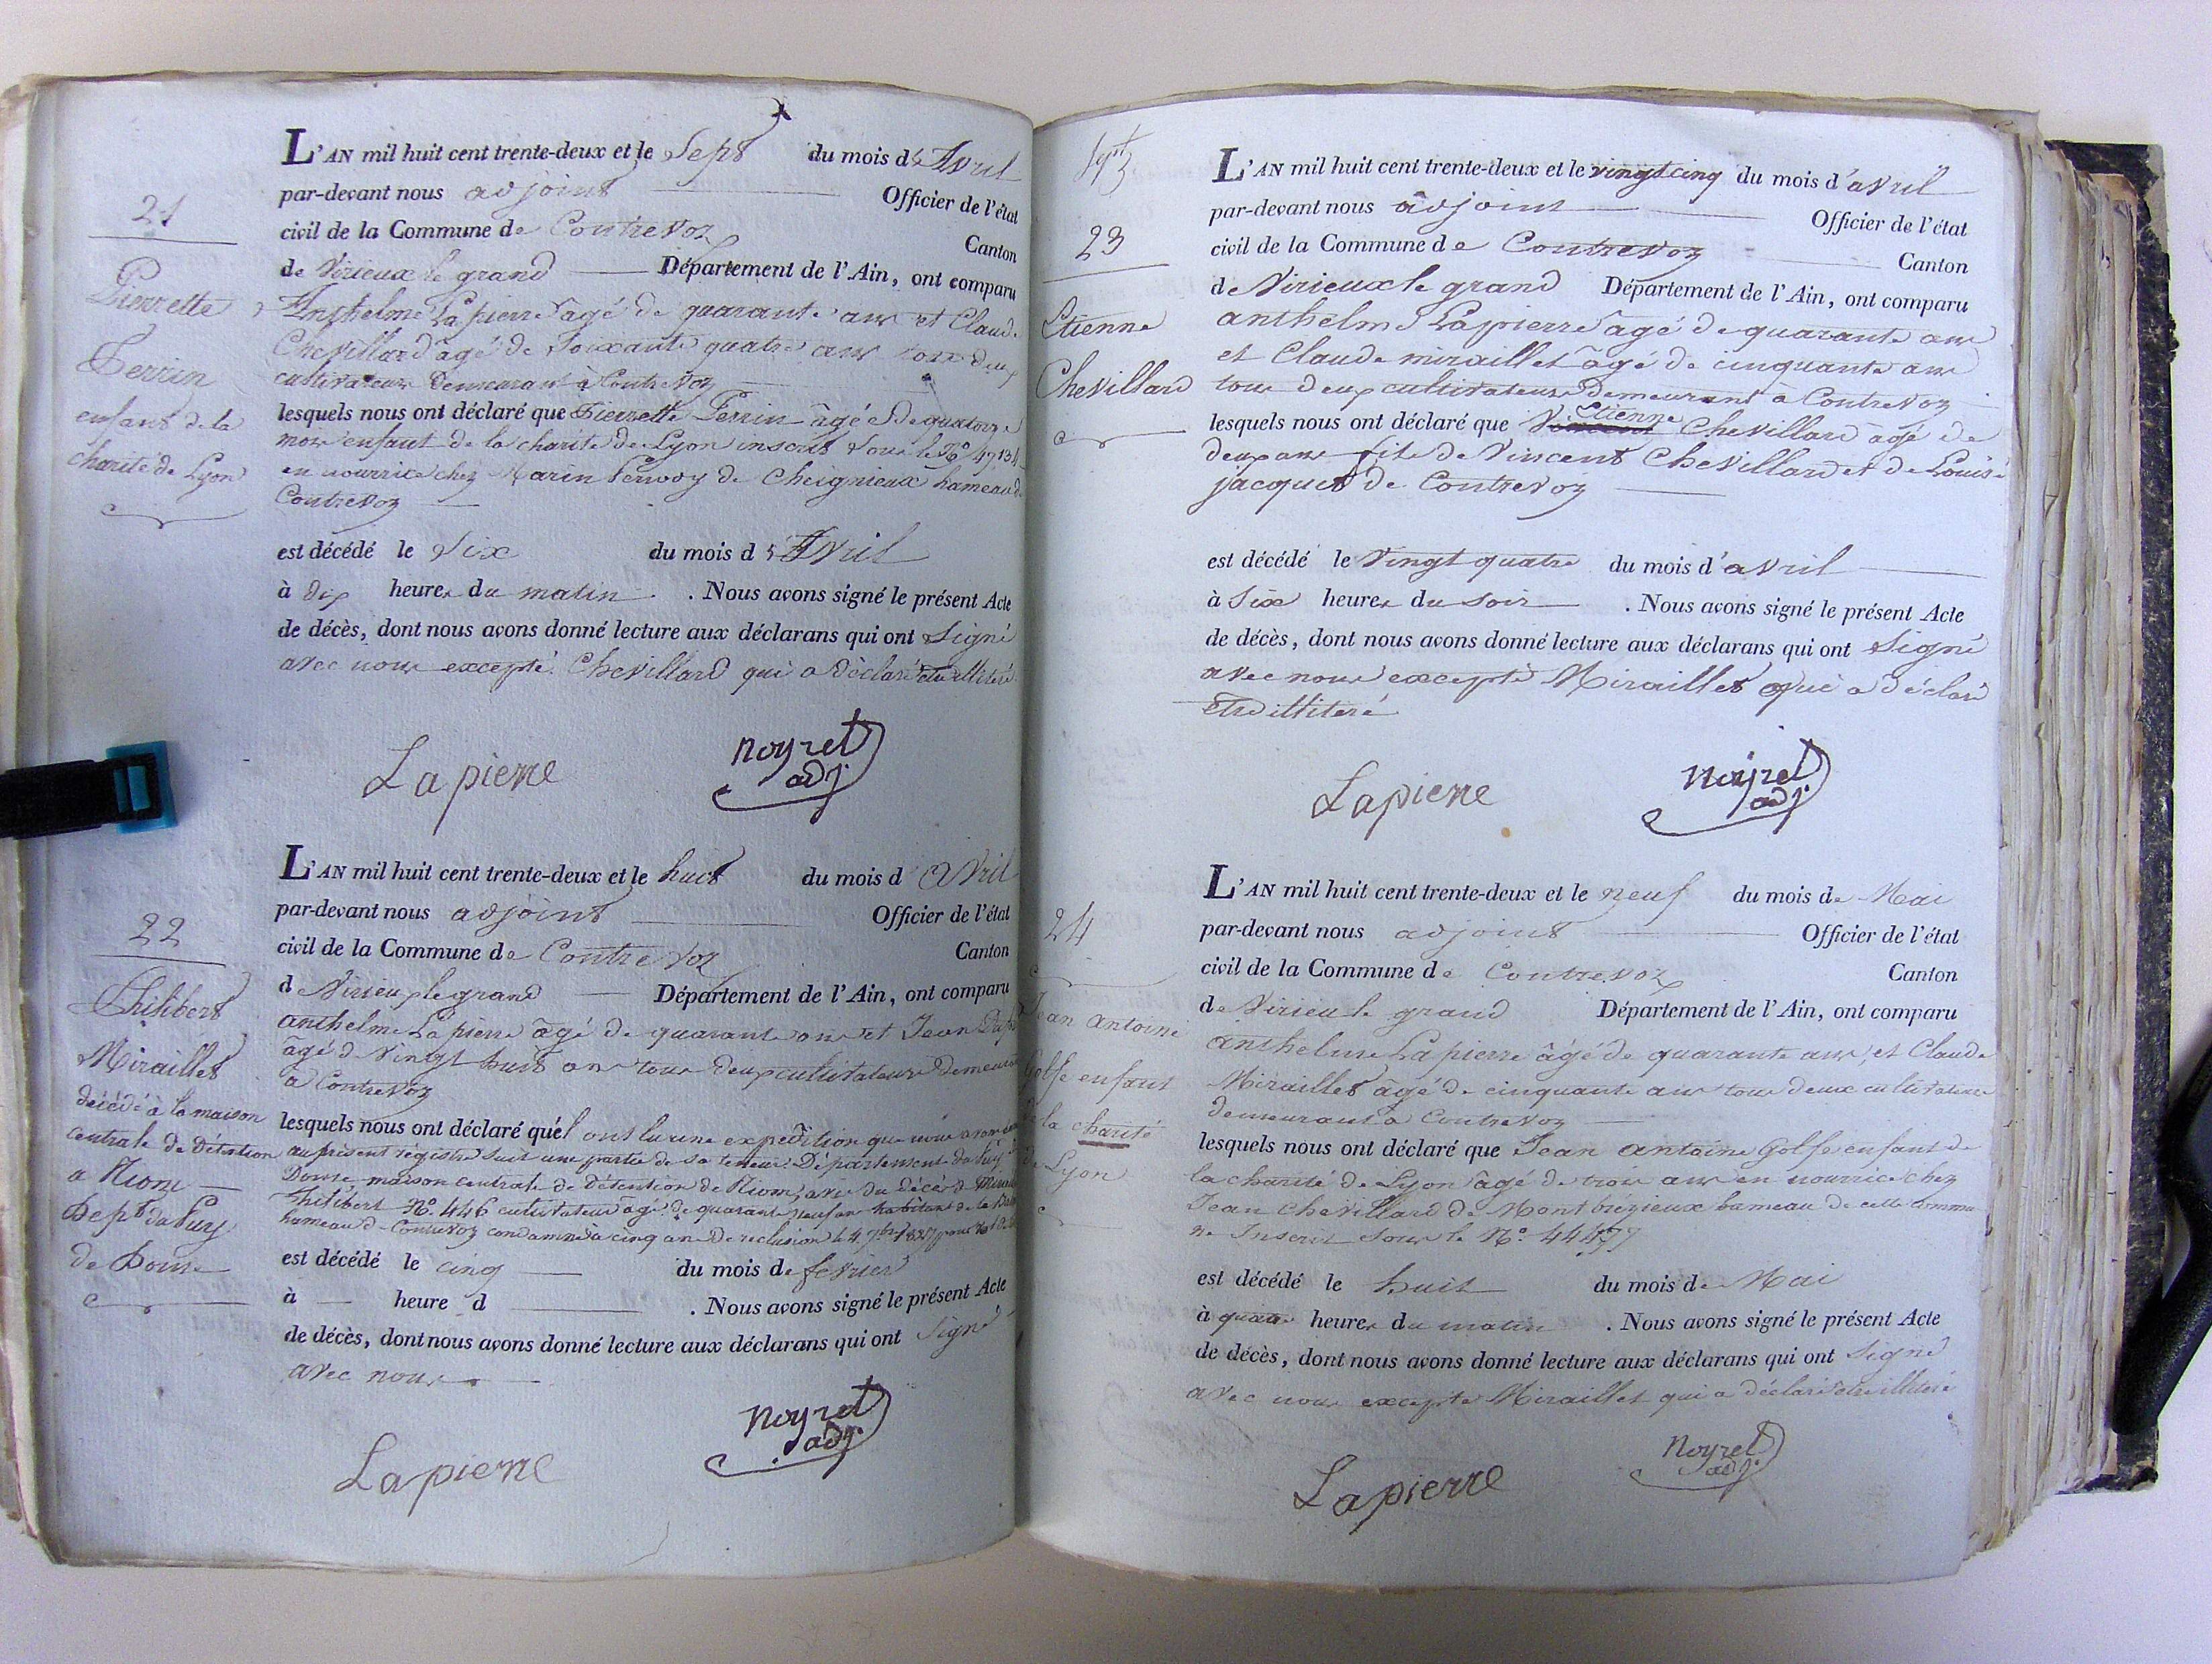 21
Pierrette
Perrin
enfant de la
charité de Lyon
L'AN mil huit cent trente-deux et le Sept du mois d'Avril
par-devant nous adjoint Officier de l'état
civil de la Commune de Contrevoz Canton
de Virieux le grand Département de l'Ain, ont comparu
Anthelme Lapierre âgé de quarante ans et Claude
Chevillard âgé de Soixante quatre ans tous deux
cultivateurs demeurant à Contrevoz
lesquels nous ont déclaré que Pierrette Perrin âgée de quatorze
mois enfant de la charité de Lyon inscrit sous le No 47134
en nourrice chez Marin Pervoy de Cheignieux hameau de
Contrevoz
est décédé le Six du mois d'Avril
à dix heures du matin . Nous avons signé le présent Acte
de décès, dont nous avons donné lecture aux déclarans qui ont Signé
avec nous excepté Chevillard qui a déclaré être illiteré
Lapierre
Noyret
adj.
22
Philibert
Miraillet
décédé à la maison
centrale de Détention
a Riom
Dept du Puy
de Dome
L'AN mil huit cent trente-deux et le huit du mois d'Avril
par-devant nous adjoint Officier de l'état
civil de la Commune de Contrevoz Canton
d Virieux le grand Département de l'Ain, ont comparu
anthelme Lapierre âgé de quarante ans et Jean
âgé d Vingt huit ans tous deux cultivateurs demeurant
a Contrevoz
lesquels nous ont déclaré qu'el ont lu une expedition que nous avons
au présent régistre suit une partie de sa teneur. Département du Puy de
Dome, maison centrale de détention de Riom, avis du décès de
Philibert No. 446 cultivateur âgé de quarante neuf ans habitant de la
hameau d Contrevoz condamné à cinq ans de reclusion le 4 7bre 1827 pour
est décédé le cinq du mois de fevrier
à heure d . Nous avons signé le présent Acte
de décès, dont nous avons donné lecture aux déclarans qui ont Signé
avec nous
Lapierre
Noyret
adj.
23
Etienne
Chevillard
L'AN mil huit cent trente-deux et le vingt cinq du mois d'avril
par-devant nous adjoint Officier de l'état
civil de la Commune de Contrevoz Canton
de Virieux le grand Département de l'Ain, ont comparu
anthelme Lapierre âgé de quarante ans
et Claude miraillet âgé de cinquante ans
tous deux cultivateurs demeurant à Contrevoz
lesquels nous ont déclaré que Vincent Etienne Chevillard âgé de
deux ans fils de Vincent Chevillard et de Louise
jacquet de Contrevoz
est décédé le Vingt quatre du mois d'avril
à Six heures du soir . Nous avons signé le présent Acte
de décès, dont nous avons donné lecture aux déclarans qui ont Signé
avec nous excepté Miraillet qui a déclaré
être illiteré
Lapierre
Noyret
adj.
24
Jean antoine
Golfe enfant
de la charité
de Lyon
L'AN mil huit cent trente-deux et le neuf du mois de Mai
par-devant nous adjoint Officier de l'état
civil de la Commune de Contrevoz Canton
de Virieu le grand Département de l'Ain, ont comparu
anthelme Lapierre âgé de quarante ans, et Claude
Miraillet âgé de cinquante ans tous deux cultivateurs
demeurant a Contrevoz
lesquels nous ont déclaré que Jean antoine Golfe enfant de
la charité de Lyon âgé de trois ans en nourrice chez
Jean chevillard de Montbrézieux hameau de cette commu
ne Inscrit sous le No. 44477
est décédé le huit du mois de Mai
à quatre heures du matin . Nous avons signé le présent Acte
de décès, dont nous avons donné lecture aux déclarans qui ont Signé
avec nous excepté Miraillet qui a déclaré être illiteré
Lapierre
Noyret
adj.